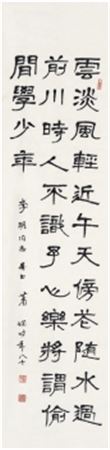 雲淡風輕近午天傍花隨水過
前川時人不識予心樂將謂偷
閒學少年
同志 蕭嫻時年八十